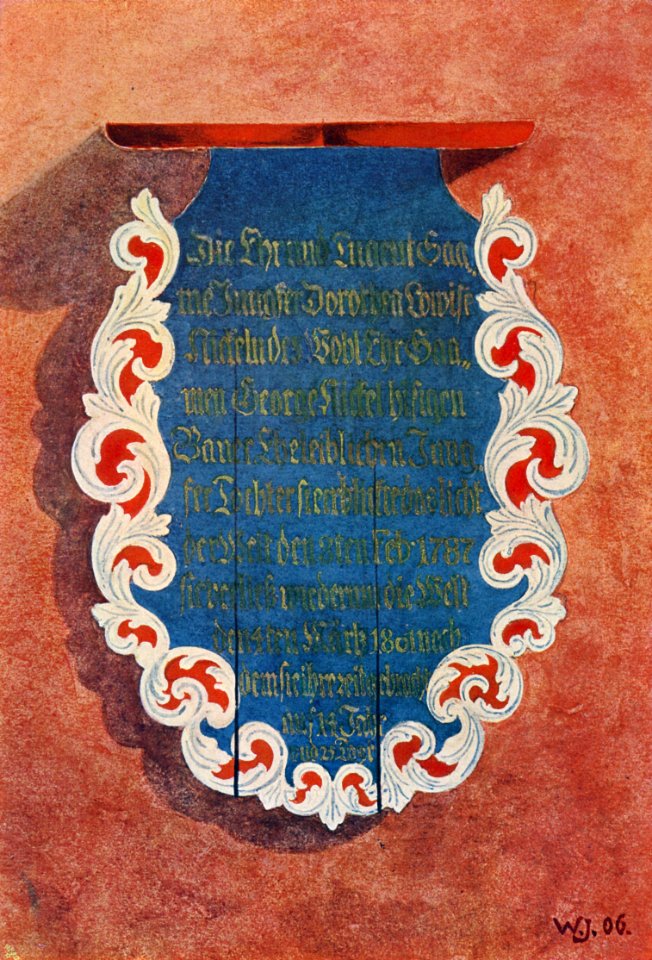 Die Ehr und Tugent Saa„
me Jungfer Dorothea Lowise
Nickeln des Wohl Ehr Saa„
men George Nickel hisigen
Bauer Eheleiblichen Jung„
fer Tochter sie erblickte das licht
der Welt den 2ten Feb 1787
sie verließ wiederum die Welt
den 4ten Märtz 1801 nach
dem sie ihre zeit gebracht
auf 14 Jahr
und 25 Tage
W.J. 06.